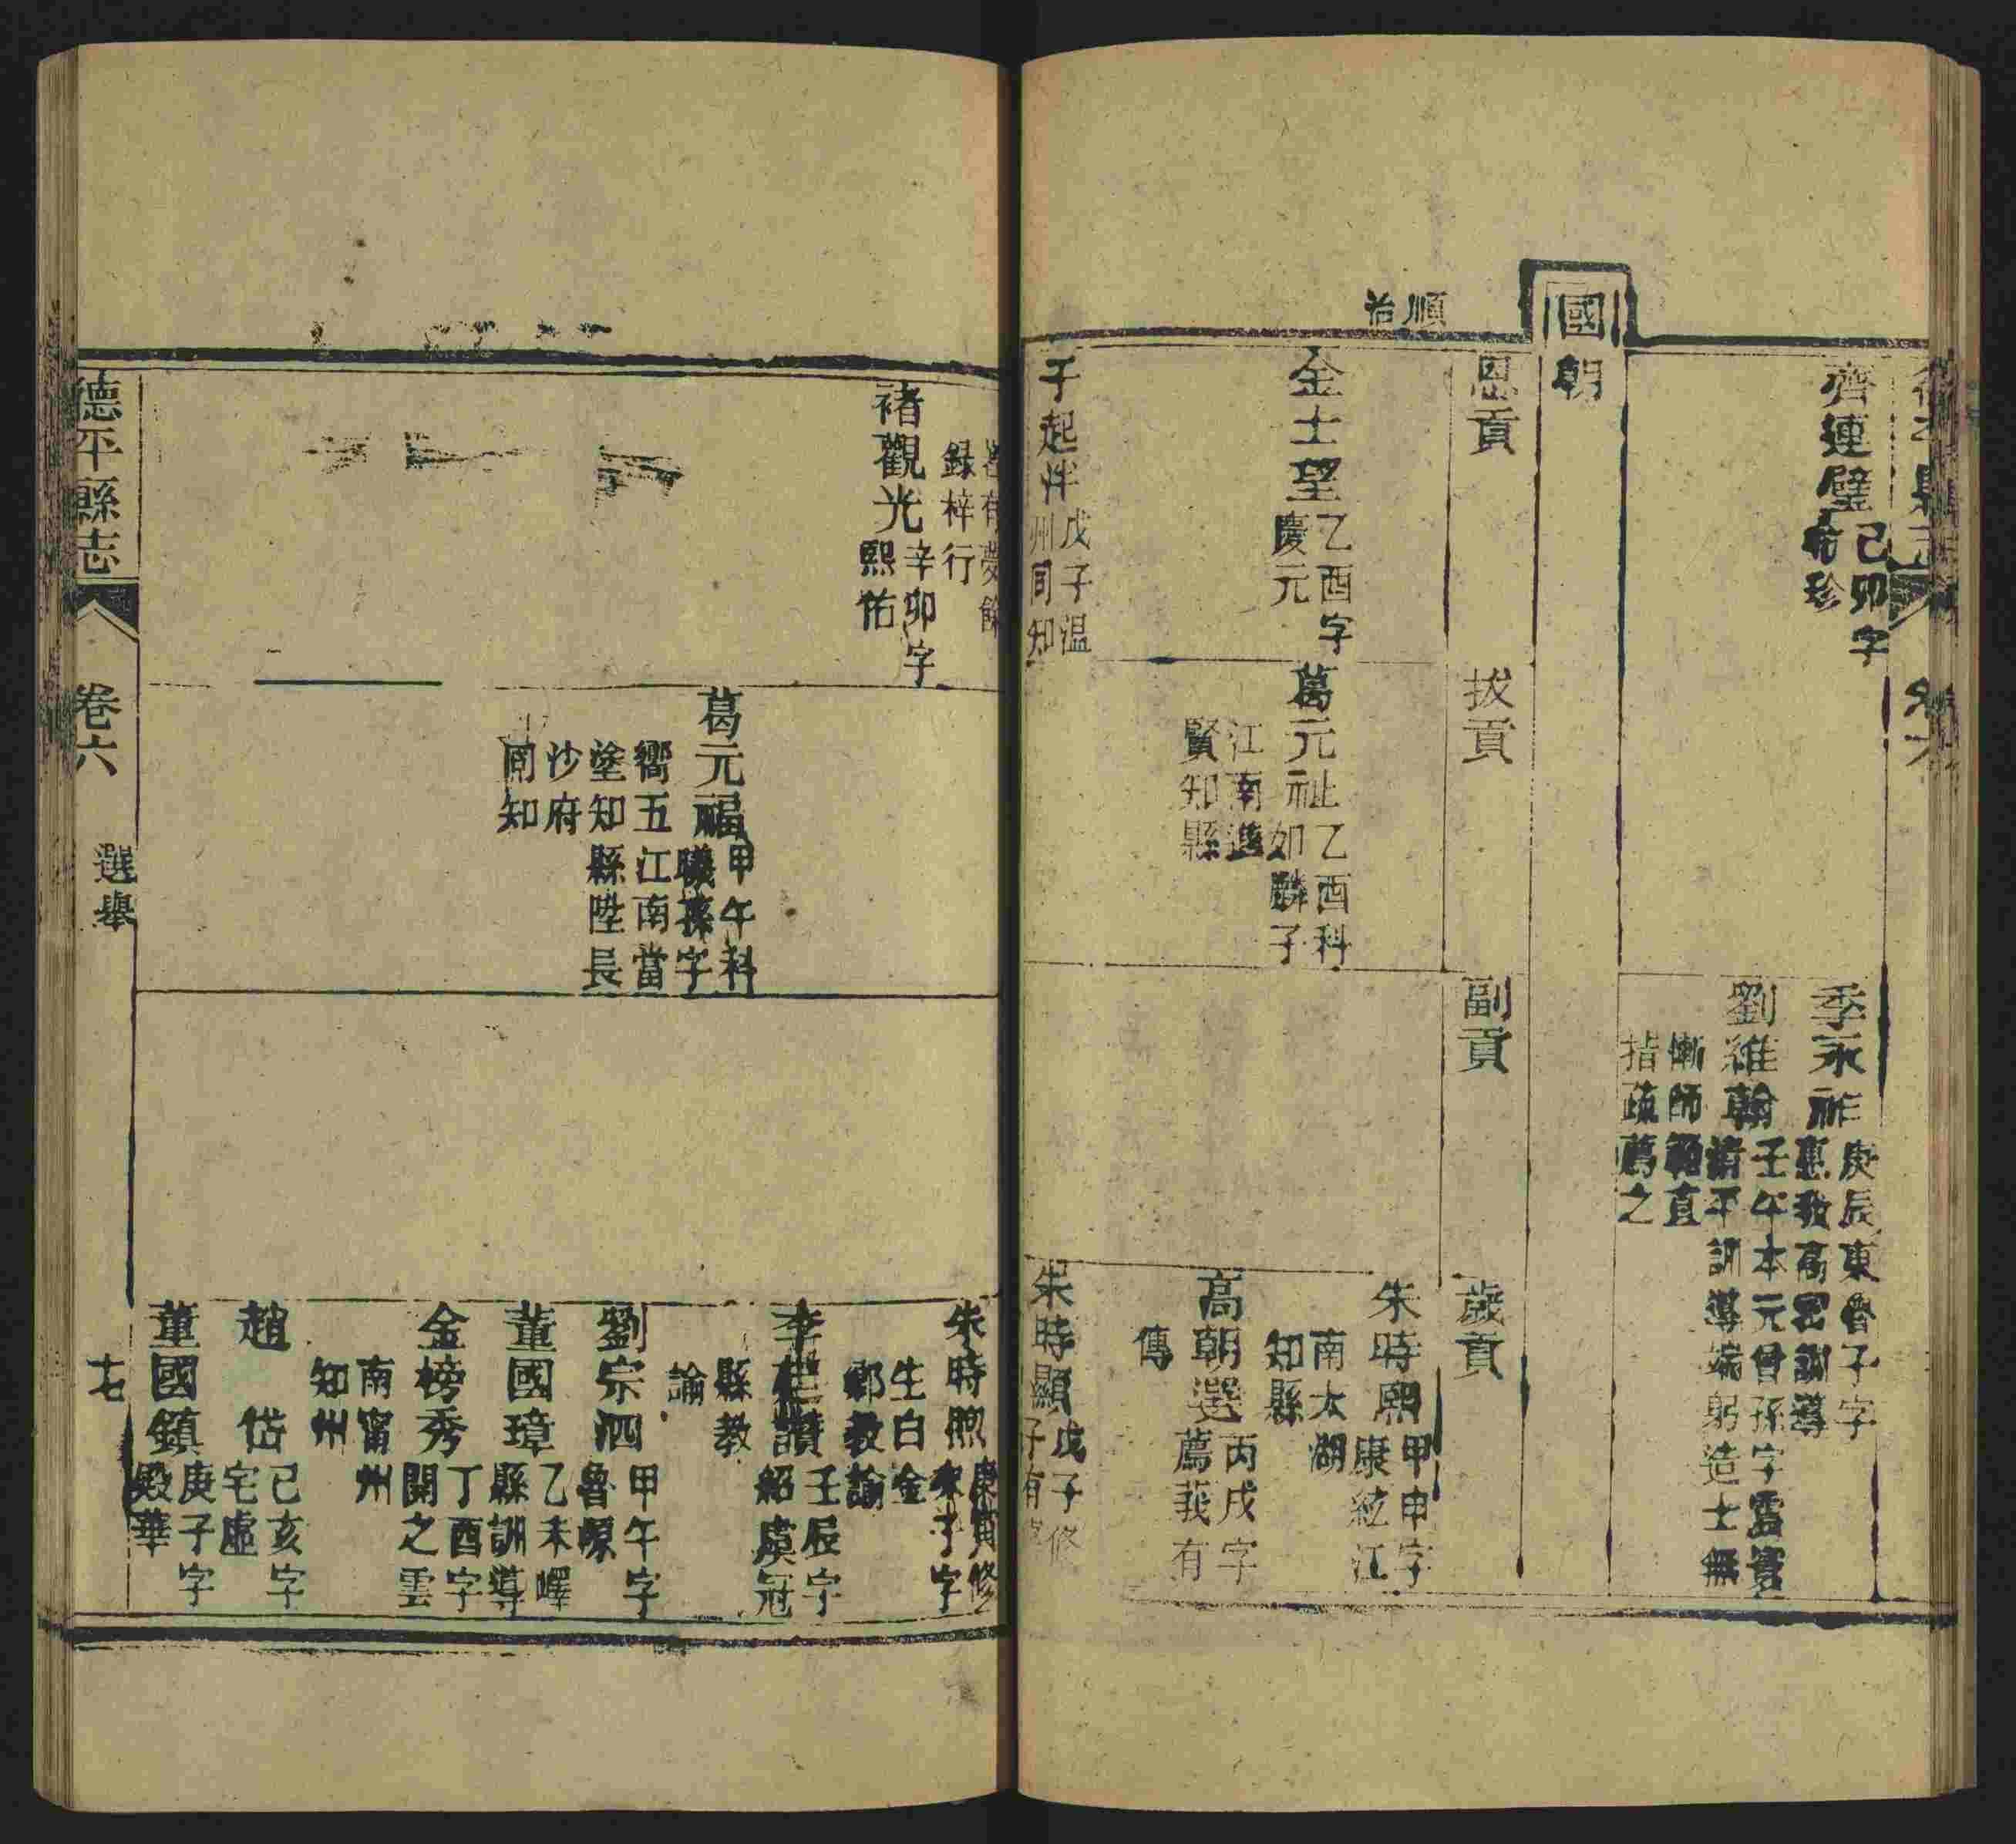 齊連璧己卯字
希珍
季永祚庚辰東魯子字
惠我高密訓導
劉維翰壬午本元曾孫字雷寰
清平訓導端躬造士無
慚師範直
指疏薦之
國朝
恩貢
拔貢
副貢
歲貢
順
治
金士望乙酉字
慶元
葛元祉乙酉科
如麟子
江南進
賢知縣
朱時熙甲申字
康絃江
南太湖
知縣
高朝選丙戌字
薦莪有
傳
于起泮戊子温
州同知
朱時顯戊子修
子有
著有夢餘
録梓行
褚觀光辛卯字
熙佑
葛元福甲午科
曦孫字
嚮五江南當
塗知縣陞長
沙府
同知
朱時煦庚寅修
來子字
生白金
鄉教諭
李 讚壬辰字
紹虞冠
縣教
諭
劉宗泗甲午字
魯源
董國璋乙未嶧
縣訓導
金榜秀丁酉字
開之雲
南甯州
知州
趙岱己亥字
宅虛
董國鎮庚子字
殿華
德平縣志
卷六
選舉
十七